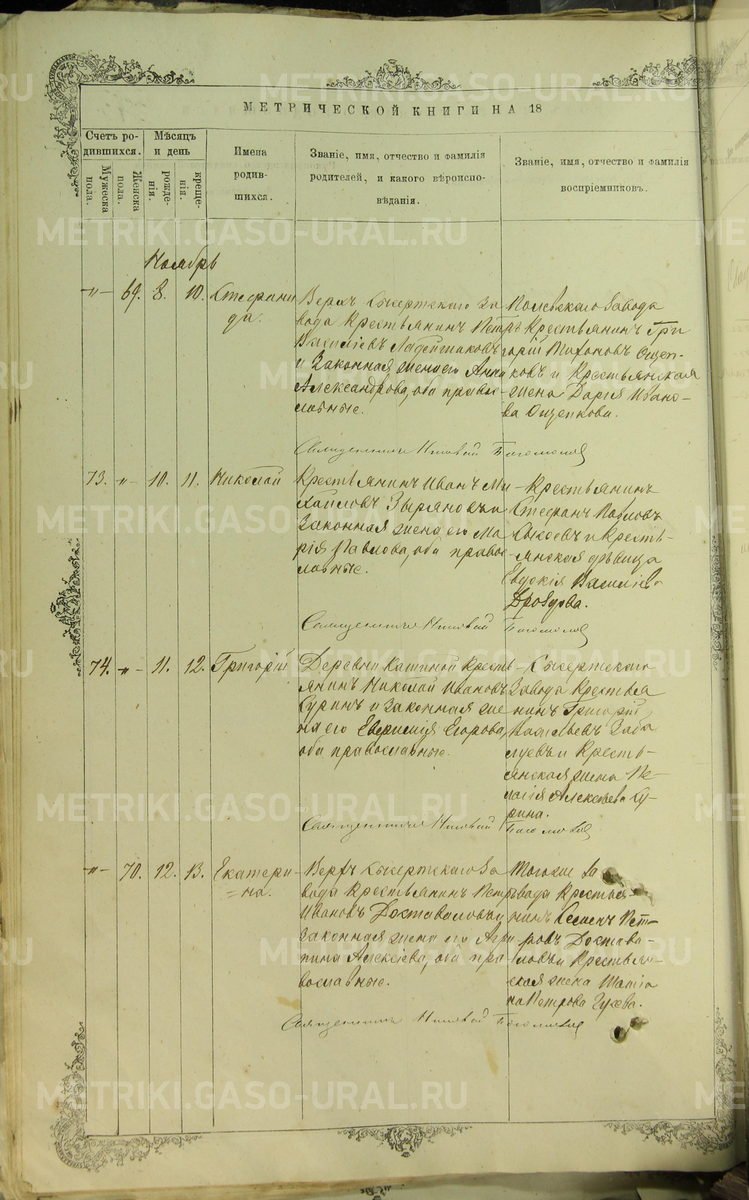 МЕТРИЧЕСКОЙ КНИГИ НА 18
Счетъ родившихся.
Мужеска пола.
Женска пола.
Мѣсяцъ и день
рожденія.
крещенія.
Имена родившихся.
Званіе, имя, отчество и фамилія
родителей, и какого вѣроиспо-
вѣданія.
Званіе, имя, отчество и фамилія
воспріемниковъ.
Ноябрь
-"- 69. 8. 10. Стефани
да.
Верхъ Сысертскаго За
вода Крестьянинъ Петръ
Василіевъ
и Законная жена его Анна
Александрова, оба правос
лавные.
Полевскаго Завода
Крестьянинъ Гри
горій Тихоновъ Ощеп-
ковъ и Крестьянская
жена Дарія Ивано-
ва Ощепкова.
Священникъ Богомолов
73. -"- 10. 11. Николай
Крестьянинъ Иванъ Ми
хаиловъ Зыряновъ и
Законная жена его Ма
рія Павлова, оба право
славные.
Крестьянинъ
Стефанъ Павловъ
Сысоевъ и Кресть-
янская дѣвица
Евдокія Василіева
Дроздова.
Священникъ Богомолов
74. -"- 11. 12. Григорій
Деревни Кашиной Кресть
янинъ Николай Ивановъ
Суринъ и Законная же
на его Евфимія Егорова,
оба православные.
Сысертскаго
Завода Крестья
нинъ Григорій
Васильевъ
и Кресть-
янская жена Пе-
лагія Алексѣева Су-
рина.
Священникъ Богомолов
-"- 70. 12. 13. Екатери
=на.
Верхъ Сысертскаго За
вода Крестьянинъ Петръ
Ивановъ Доставаловъ и
Законная жена его Агри
пина Алексіева, оба пра
вославные.
Тогоже За
вода Крестья-
нинъ Семенъ Пет-
ровъ Достава-
ловъ и Крестьян-
ская жена Татія
на Петрова Гусева.
Священникъ Богомолов
METRIKI.GASO-URAL.RU